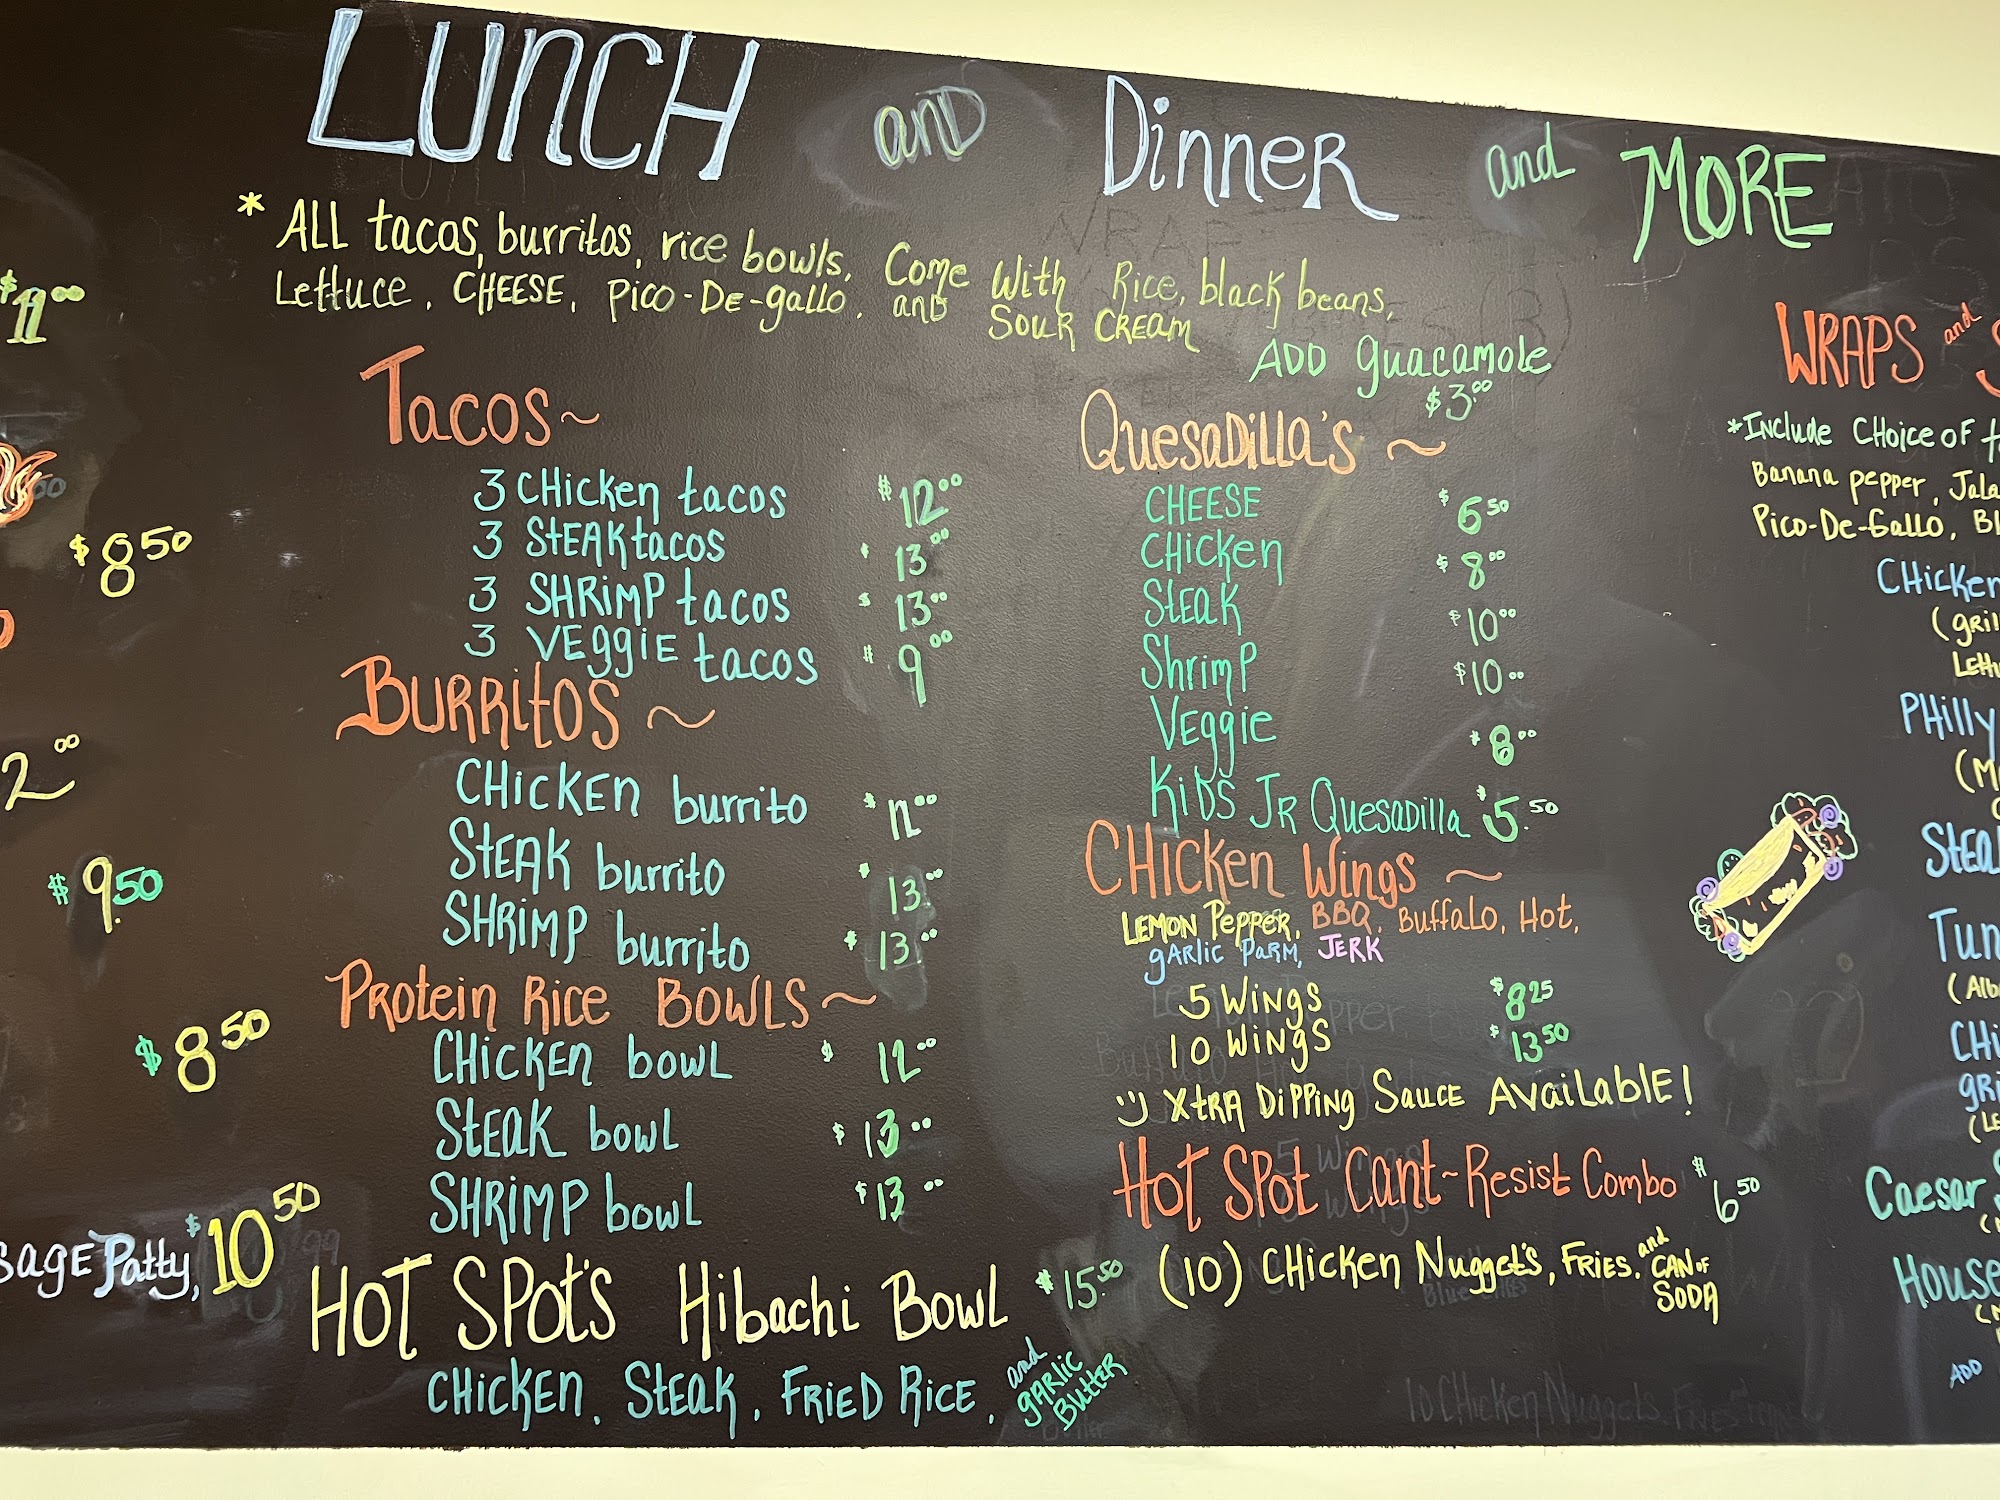 LUNCH and Dinner and MORE
* ALL tacos, burritos, rice bowls, Come With Rice, black beans,
Lettuce, CHEESE, Pico-De-gallo, and SOUR CREAM
ADD guacamole
$3.00
$11.00
$8.50
2.00
$9.50
$8.50
Patty, $10.50
Tacos~
3 CHicken tacos $12.00
3 StEAK tacos $13.00
3 SHRiMP tacos $13.00
3 VEggiE tacos $9.00
BURRitOS~
CHicKEn burrito $12.00
StEAK burrito $13.00
SHRiMP burrito $13.00
PROtein Rice BOWLS~
CHicKEn bowl $12.00
StEAK bowl $13.00
SHRiMP bowl $13.00
HOT SPOt's Hibachi Bowl $15.50
CHicKEn, StEAK, FRiED Rice, and gARlic BUttER
QuesaDilla's~
CHEESE $6.50
CHicken $8.00
StEAK $10.00
Shrimp $10.00
Veggie $8.00
KiDS JR Quesadilla $5.50
CHicken Wings~
LEMON PEPPER, BBQ, BuffaLo, Hot,
gARlic PaRM, JERK
5 WiNgS $8.25
10 WiNgS $13.50
XtRA DiPPiNg SauCE AVaiLABLE!
HOT SPOt Cant-Resist Combo $6.50
(10) CHicken Nugget's, FRiES, and CAN OF SODA
WRAPS and
*INclude CHOice OF
Banana pepper,
Pico-De-Gallo,
CHicken
PHilly
Caesar
House
ADD